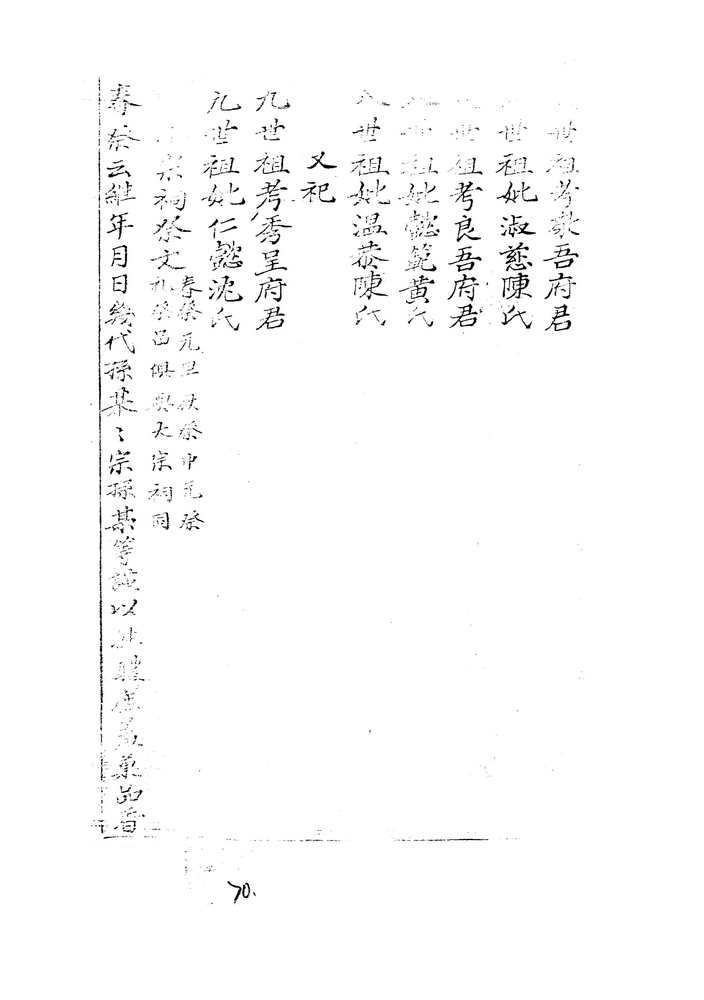 世祖考敬吾府君
世祖妣淑慈陳氏
世祖考良吾府君
世祖妣懿範黃氏
世祖妣温恭陳氏
又祀
九世祖考秀呈府君
九世祖妣仁懿沈氏
祠祭文
春祭元旦秋祭中元祭
礼祭品俱與大宗祠同
春祭云維年月日幾代孫某〻宗孫某等謹以牲醴庶羞菓品香
70.